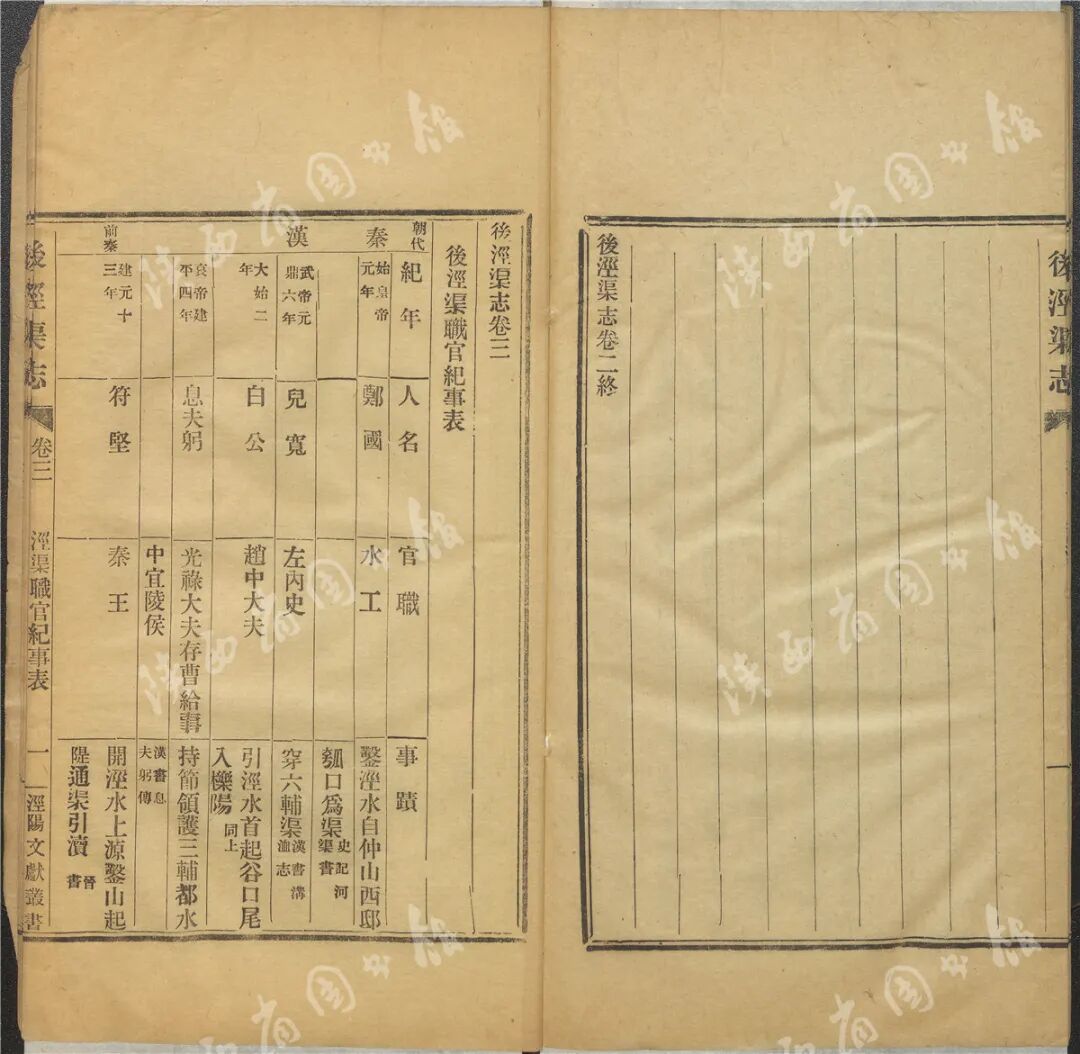 後涇渠志
一
後涇渠志卷二終
後涇渠志卷三
後涇渠職官紀事表
朝代
紀年
人名
官職
事蹟
秦
始皇帝
元年
鄭國
水工
鑿涇水自仲山西邸
瓠口爲渠
史記河
渠書
漢
武帝元
鼎六年
兒寬
左內史
穿六輔渠
漢書溝
洫志
大始二
年
白公
趙中大夫
引涇水首起谷口尾
入櫟陽
同上
哀帝建
平四年
息夫躬
光祿大夫存曹給事
中宜陵侯
持節領護三輔都水
漢書息
夫躬傳
前秦
建元十
三年
符堅
秦王
開涇水上源鑿山起
隄通渠引瀆
晉
書
後涇渠志
卷三
涇渠職官紀事表
一
涇陽文獻叢書
陝西省圖書館
陝西省圖書館
陝西省圖書館
陝西省圖書館
陝西省圖書館
陝西省圖書館